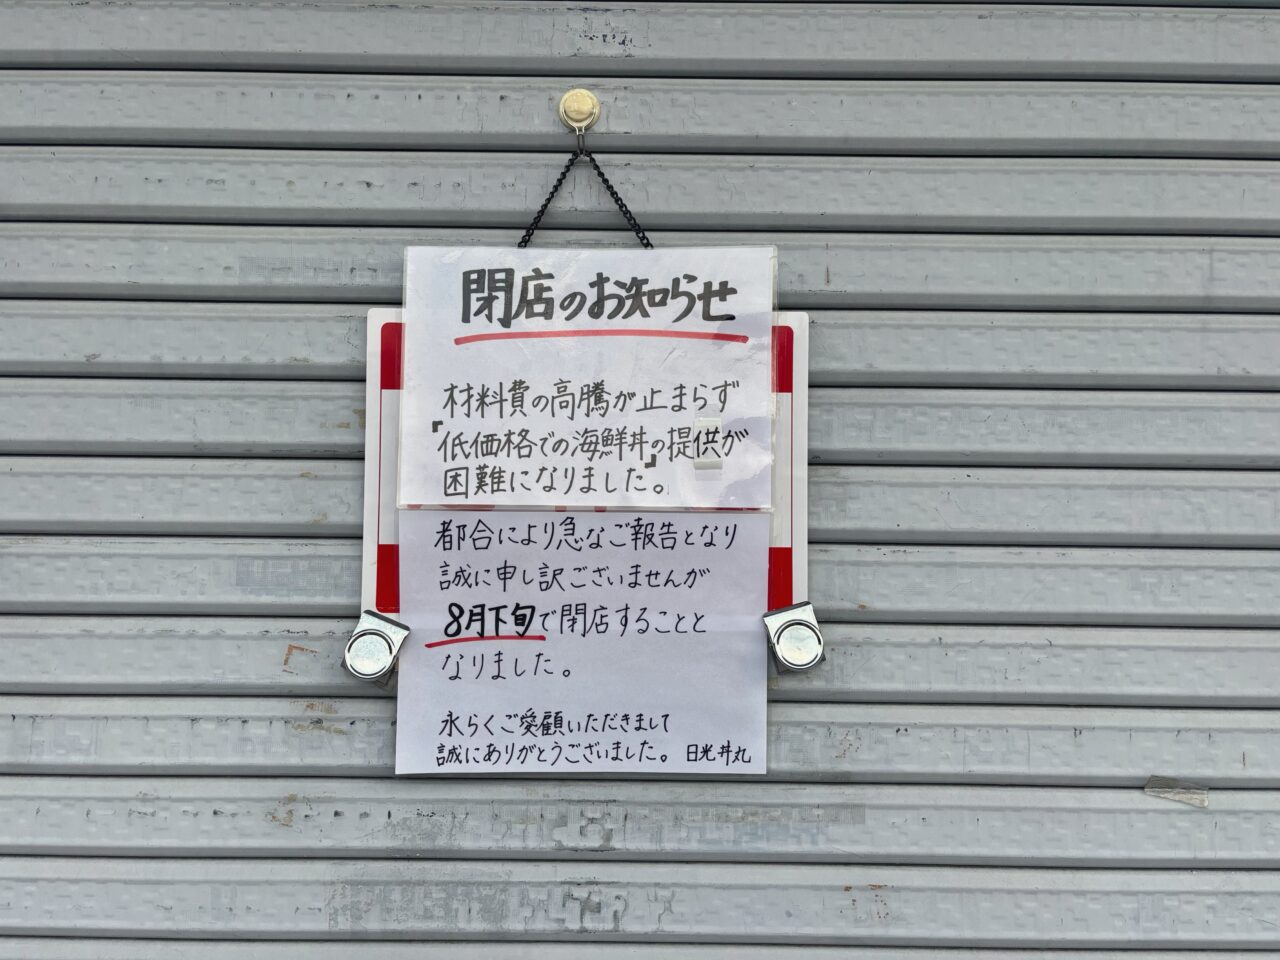 閉店のお知らせ
材料費の高騰が止まらず
『低価格での海鮮丼』の提供が
困難になりました。
都合により急なご報告となり
誠に申し訳ございませんが
8月下旬で閉店することと
なりました。
永らくご愛顧いただきまして
誠にありがとうございました。 日光丼丸